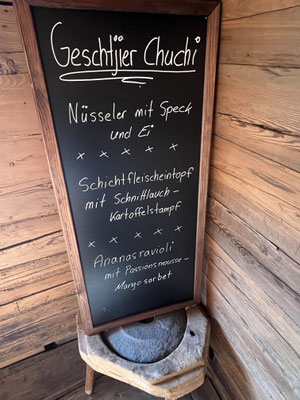 Geschtjier Chuchi
Nüsseler mit Speck
und Ei
x x x x x
Schichtfleischeintopf
mit Schnittlauch-
Kartoffelstampf
x x x x x
Ananasravioli
mit Passionsmousse-
Mangosorbet